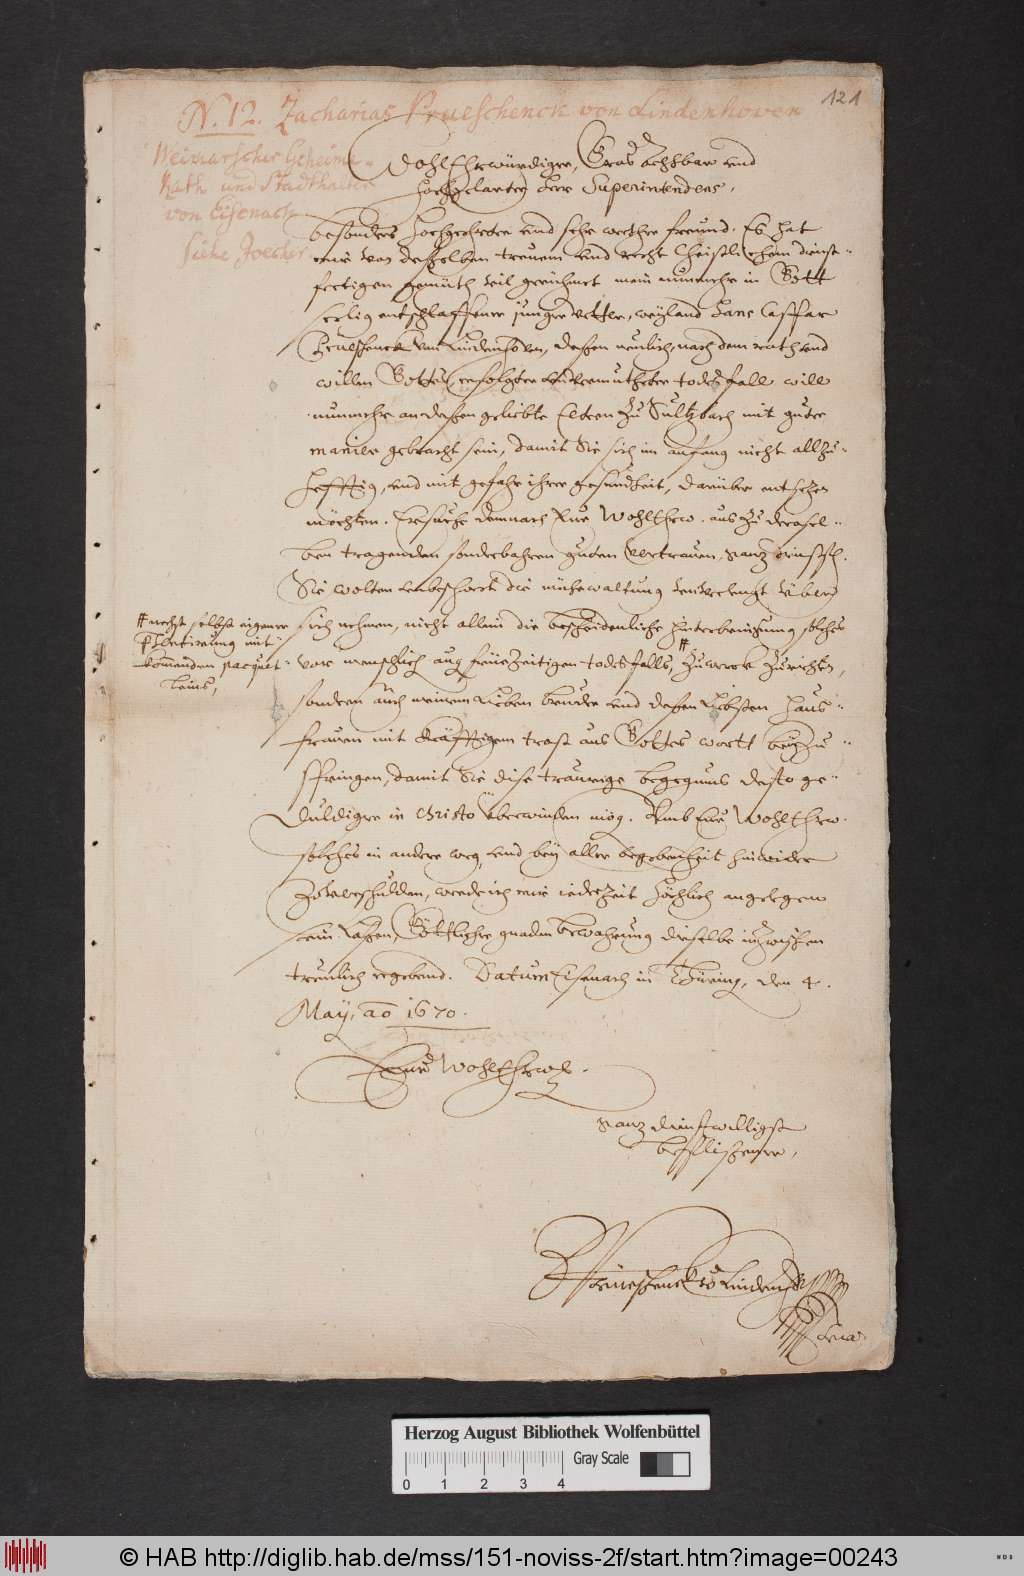 121
N. 12. Zacharias Prueschenck von Lindenhoven
Weimarscher Geheime
Rath und Stadthalter
von Eisenach
Siehe Joecher
WohlEhrwürdiger, Gros Achtbar und
Hochgelarter Herr Superintendens,
besonders Hochgeehrter und sehr werther freund. Es hat
mir von desselben treuem und recht Christlichem dienst-
fertigen gemüth viel gerühmet mein nunmehr in Gott
seelig entschlaffener junger vetter, weyland Hans Caspar
Prueschenck von Lindenhoven, dessen neulich, nach dem rath und
willen Gottes, erfolgter unvermutheter todesfall will
nunmehr an dessen geliebte Eltern zu Sultzbach mit guter
manier gebracht sein, damit Sie sich im anfang nicht allzu-
hefftig, und mit gefahr ihrer gesundheit, darüber entsetzen
möchten. Ersuche demnach Eur WohlEhrw. aus zu derosel-
ben tragenden sonderbahren guten vertrauen, gantz dienstl.
Sie wolten unbeschwert die mühewaltung
sich nehmen, nicht allein die bescheidentliche hinterbringung solches
# nechst selbst eigener
mit
kommenden pacquet-
leins,
vor menschlich aug frühzeitigen todesfalls, # zuwerck zurichten,
sondern auch meinem lieben bruder und dessen liebsten Haus-
frauen mit kräfftigem trost aus Gottes wortt beyzu-
springen, damit Sie dise traurige begegnus desto ge-
duldiger in Christo überwinden mög. Umb Eur WohlEhrw.
solches in andere weg und bey aller begebenheit hinwider
zuverschulden, werde ich mir iederzeit höchlich angelegen
sein lassen, Göttlicher gnaden bewahrung dieselbe inzwischen
treulich ergebend. Datum Eisenach in Thüring, den 4.
May, ao 1670.
Eur WohlEhrw.
gantz dienstwilligst
beflissener,
ZPrueschenck v Lindenhoven
Herzog August Bibliothek Wolfenbüttel
Gray Scale
0 1 2 3 4
© HAB http://diglib.hab.de/mss/151-noviss-2f/start.htm?image=00243